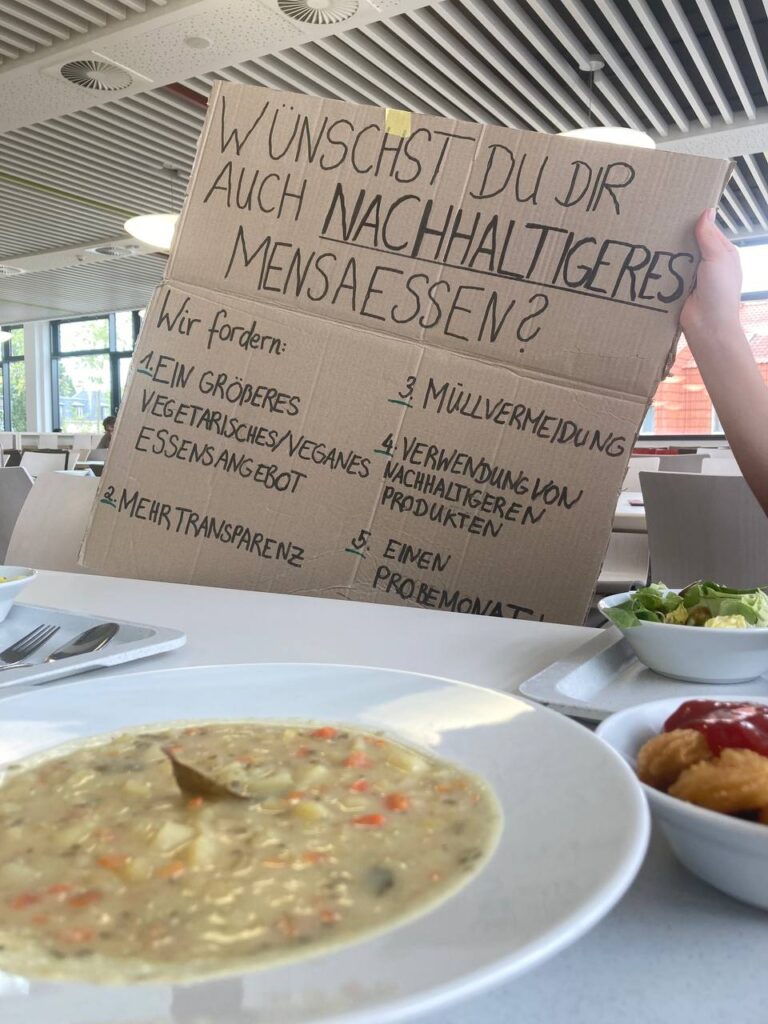 WÜNSCHST DU DIR
AUCH NACHHALTIGERES
MENSAESSEN?
Wir fordern:
1. EIN GRÖßERES
VEGETARISCHES/VEGANES
ESSENSANGEBOT
2. MEHR TRANSPARENZ
3. MÜLLVERMEIDUNG
4. VERWENDUNG VON
NACHHALTIGEREN
PRODUKTEN
5. EINEN
PROBEMONAT!